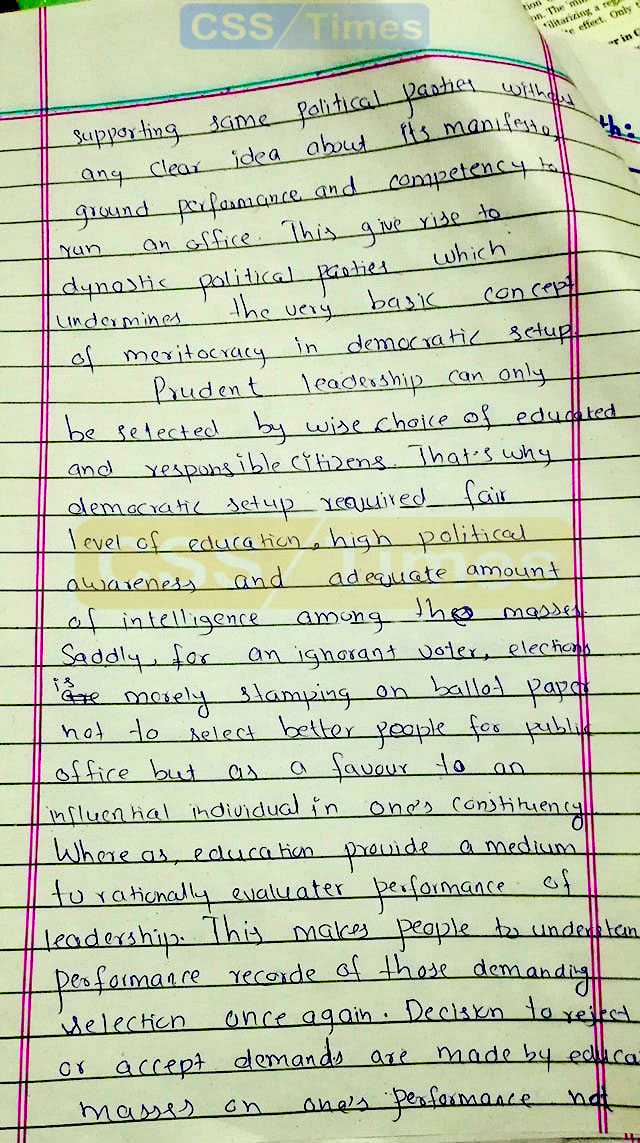 CSS/Times
tion
on. The mil
ilitarizing a reg
effect. Only
er in C
th:
supporting same political parties without
any clear idea about its manifesto,
ground performance and competency to
run an office. This give rise to
dynastic political parties which
undermines the very basic concept
of meritocracy in democratic setup.
Prudent leadership can only
be selected by wise choice of educated
and responsible citizens. That's why
democratic setup required fair
level of education, high political
CSS/Times
awareness and adequate amount
of intelligence among the masses.
Saddly, for an ignorant voter, elections
is
are merely stamping on ballot paper
not to select better people for public
office but as a favour to an
influential individual in one's constituency
Where as, education provide a medium
to rationally evaluater performance of
leadership. This makes people to understan
performance recorde of those demanding
selection once again. Decision to reject
or accept demands are made by educa
masses on one's performance not